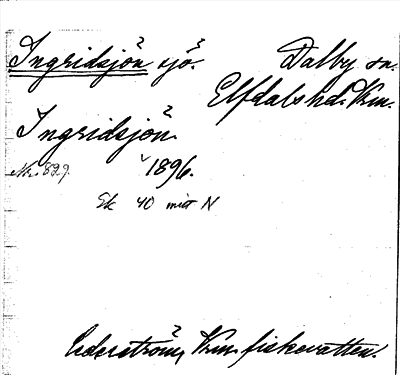 Ingridsjön sjö. Dalby sn.
Elfdals hd. Krm.
Ingridsjön
1896.
Ek 40 mitt N
Cederström, Krm fiskevatten.